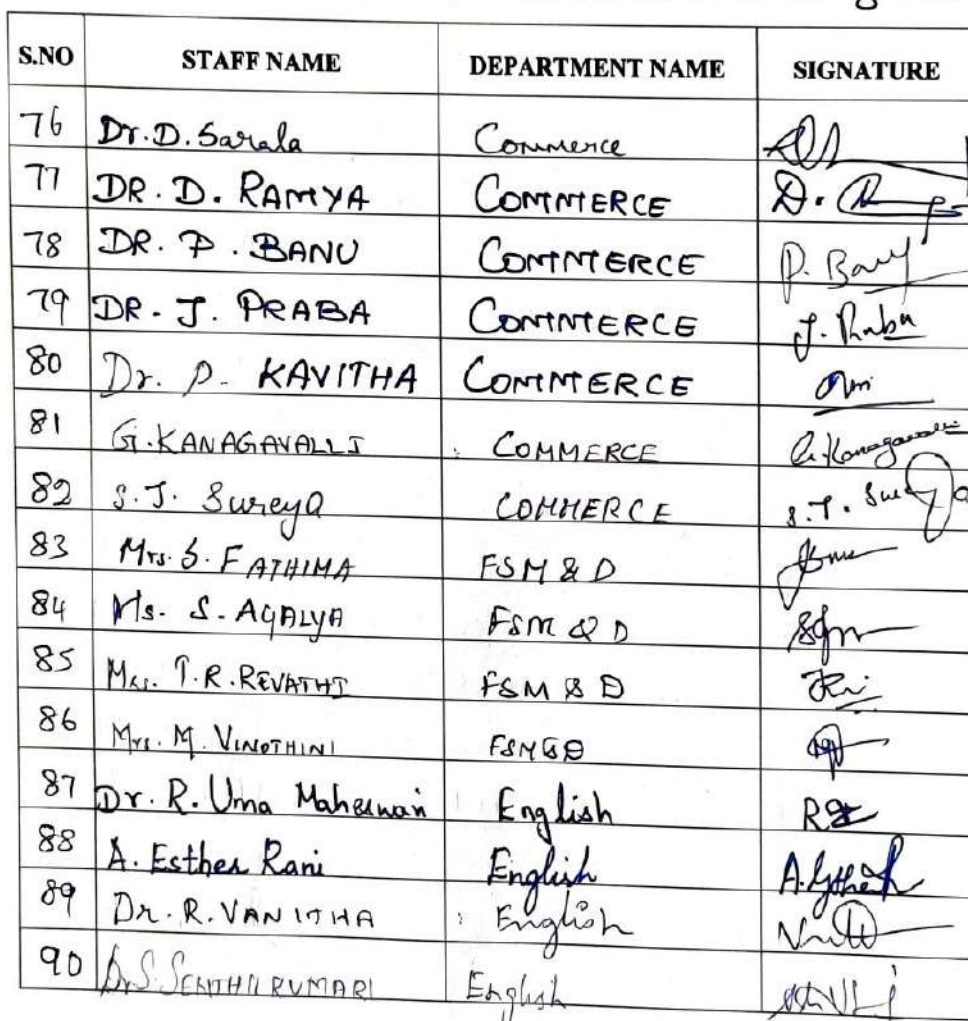 S.NO STAFF NAME DEPARTMENT NAME SIGNATURE
76 Dr. D. Sarala Commerce
77 DR. D. RAMYA COMMERCE D.
78 DR. P. BANU COMMERCE P. Banu
79 DR. J. PRABA COMMERCE J. Praba
80 Dr. P. KAVITHA COMMERCE
81 G. KANAGAVALLI COMMERCE G. Kanagavalli
82 S. J. Sureya COMMERCE S. J. Sureya
83 Mrs. S. FATHIMA FSM & D
84 Ms. S. AGALYA FSM & D
85 Mrs. T. R. REVATHI FSM & D
86 Mrs. M. VINOTHINI FSM & D
87 Dr. R. Uma Maheswari English
88 A. Esther Rani English A. Esther
89 Dr. R. VANITHA English
90 Dr. S. SENTHILKUMARI English